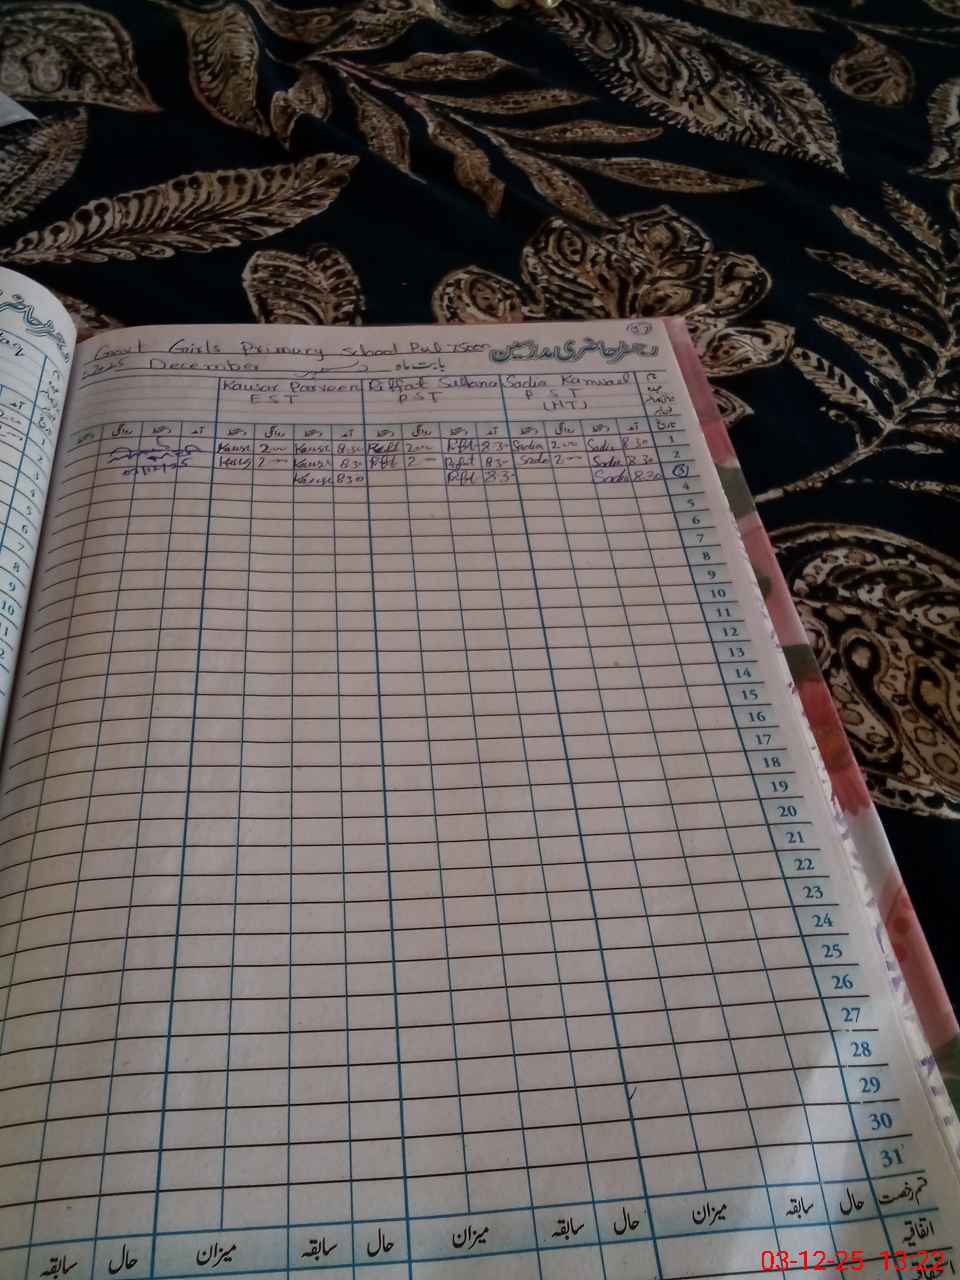 رجسٹر حاضری مدرسین
Govt Girls Primary School Pul
2025 December بابت ماہ دسمبر
Kausar Parveen Riffat Sultana Sadia Kanwal
EST PST PST
(HT)
دستخط روانگی دستخط آمد دستخط روانگی دستخط آمد دستخط روانگی دستخط آمد دستخط روانگی دستخط آمد تاریخ
Kausr 2:00 Kausr 8:30 Rift 2:00 Rift 8:30 Sadia 2:00 Sadia 8:30 1
Kausr 2:00 Kausr 8:30 Rift 2:00 Rifat 8:30 Sadia 2:00 Sadia 8:30 2
Kausr 8:30 Rift 8:30 Sadia 8:30 3
4
5
6
7
8
9
10
11
12
13
14
15
16
17
18
19
20
21
22
23
24
25
26
27
28
29
30
31
سابقہ حال میزان سابقہ حال میزان سابقہ حال میزان سابقہ حال قسم رخصت
اتفاقیہ
03-12-25 13:22